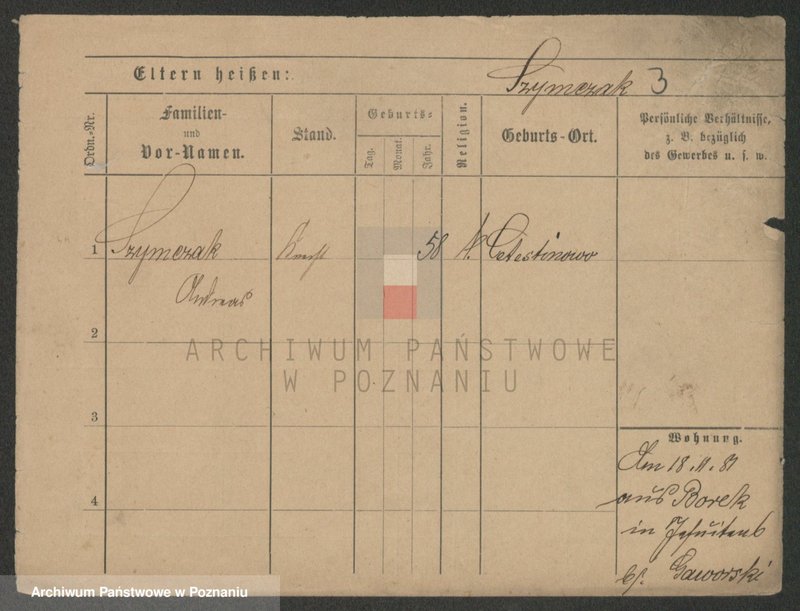 Eltern heißen:
Szymczak 3
Ordn.-Nr.
Familien-
und
Vor-Namen.
Stand.
Geburts-
Tag.
Monat.
Jahr.
Religion.
Geburts-Ort.
Persönliche Verhältnisse,
z. B. bezüglich
des Gewerbes u. s. w.
1 Szymczak Knecht 58 k. Celestinowo
Andreas
2
3
4
Wohnung.
Am 18.11.81
aus Borek
in Jesuiten 6
bei Gaworski
ARCHIWUM PAŃSTWOWE
W POZNANIU
Archiwum Państwowe w Poznaniu